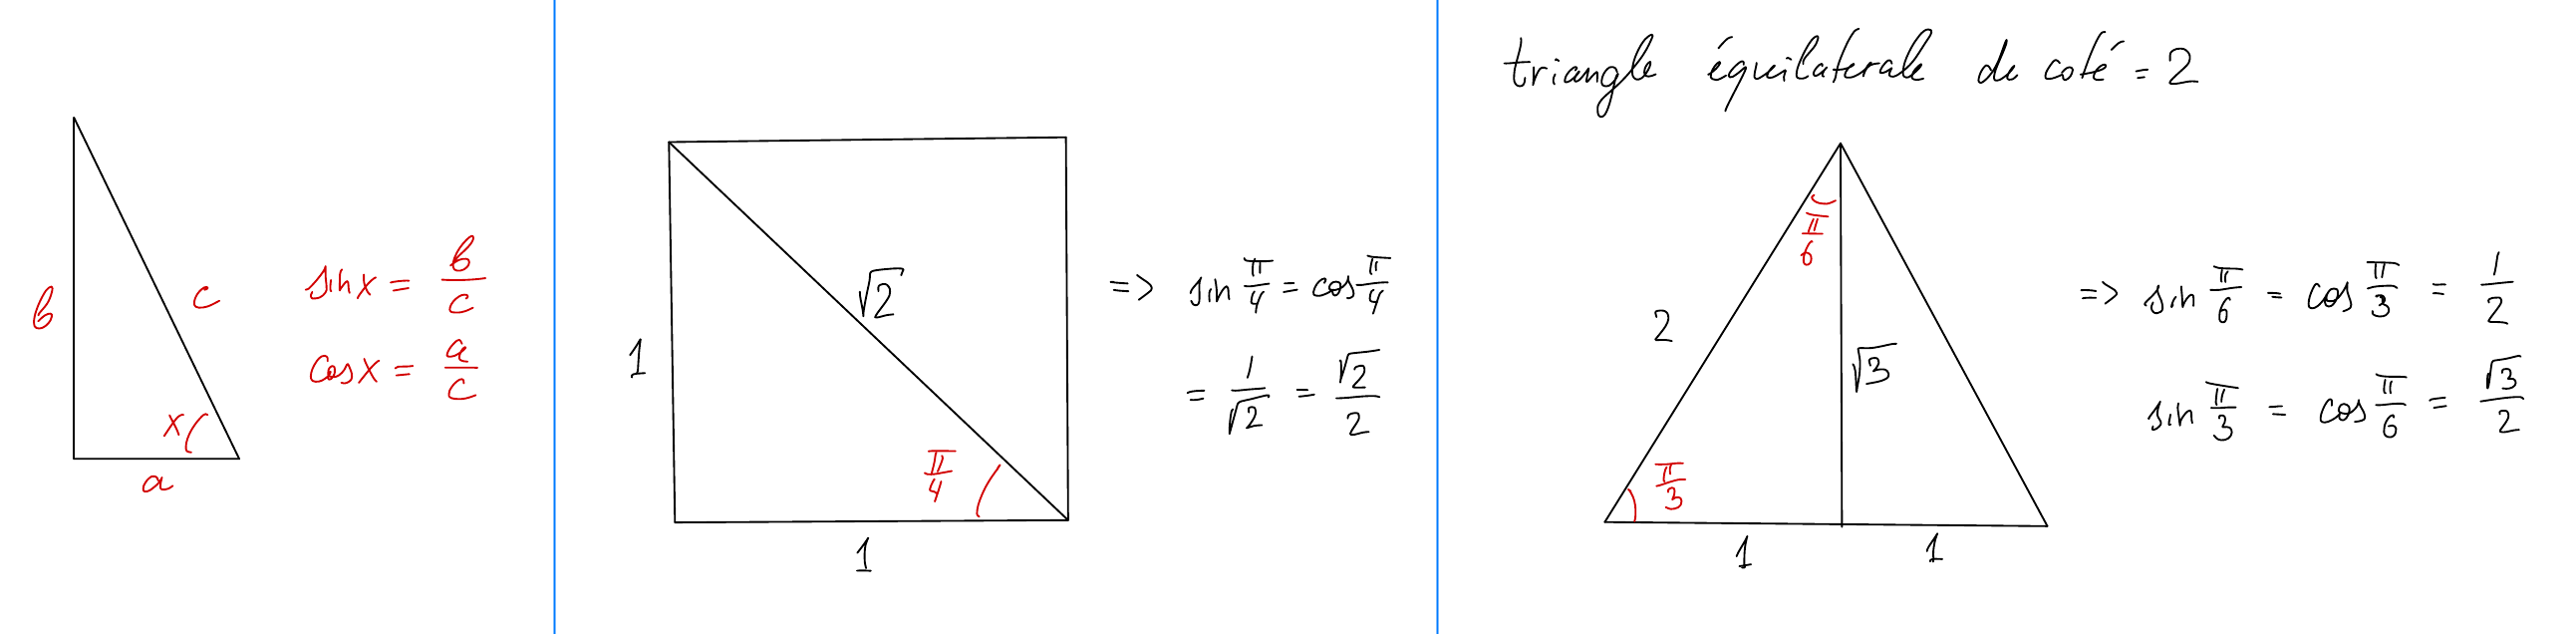 b
c
x
a
sin x = b/c
cos x = a/c
1
√2
π/4
1
=> sin π/4 = cos π/4
= 1/√2 = √2/2
triangle équilaterale de coté = 2
π/6
2
√3
π/3
1
1
=> sin π/6 = cos π/3 = 1/2
sin π/3 = cos π/6 = √3/2